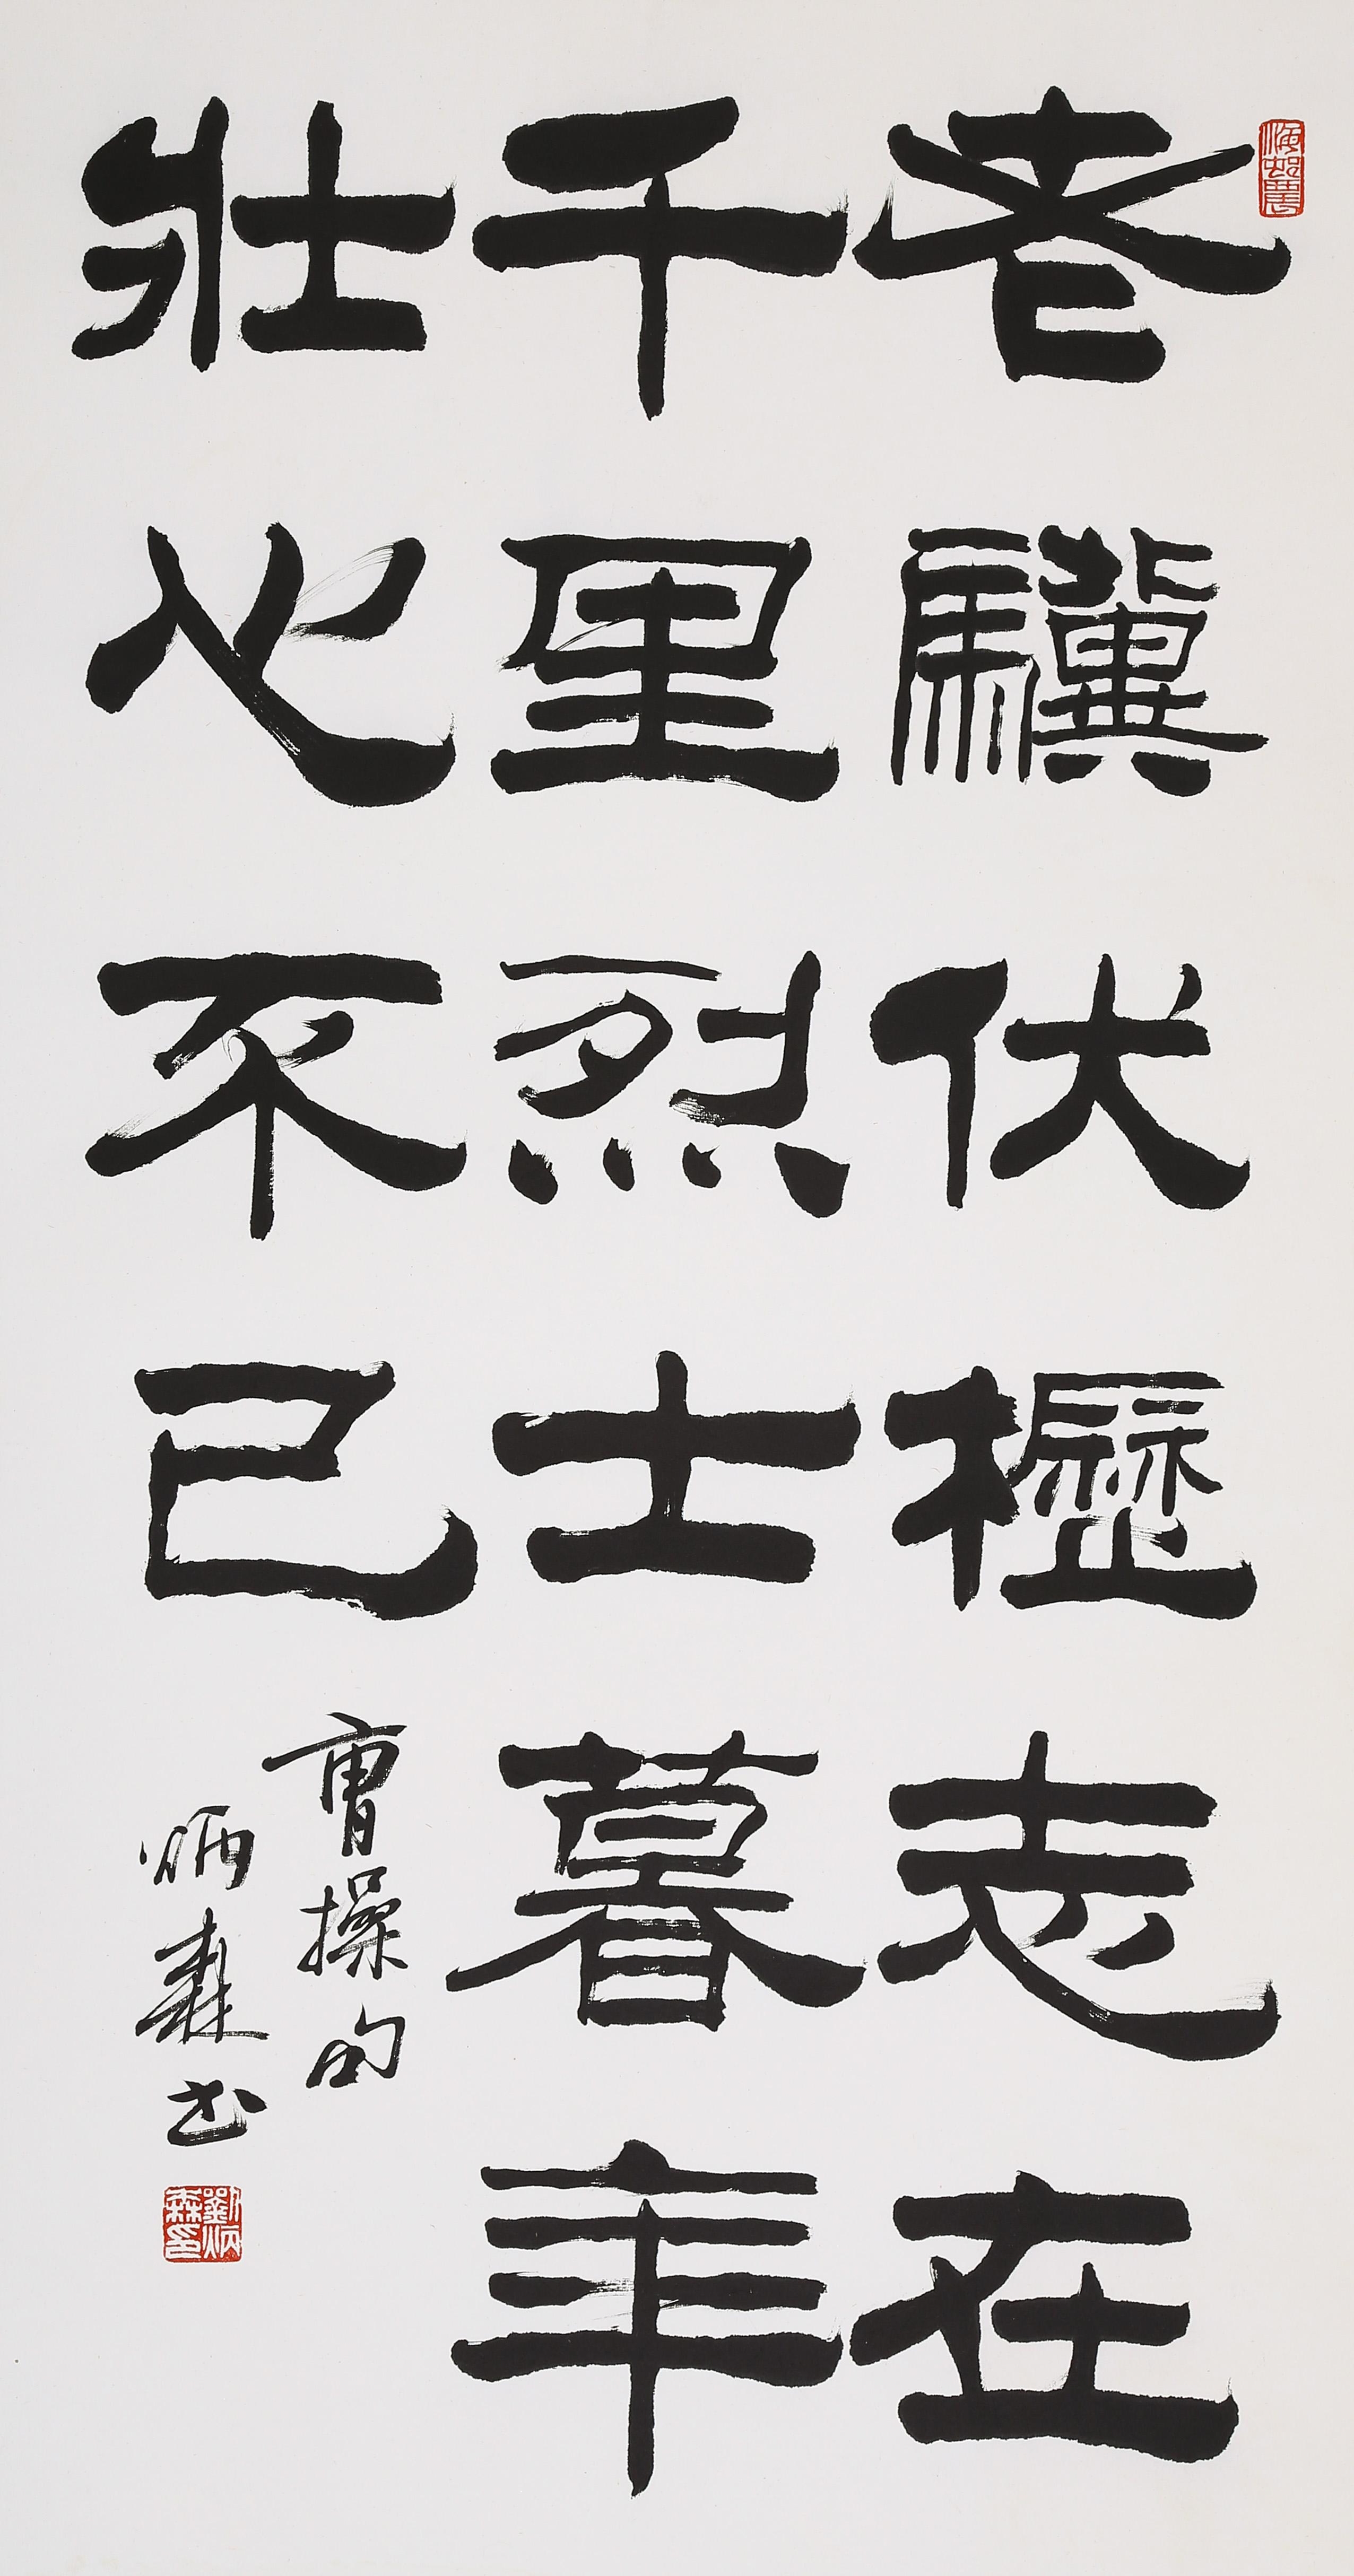 老驥伏櫪志在
千里烈士暮年
壯心不已
曹操句
炳森书
劉炳森印